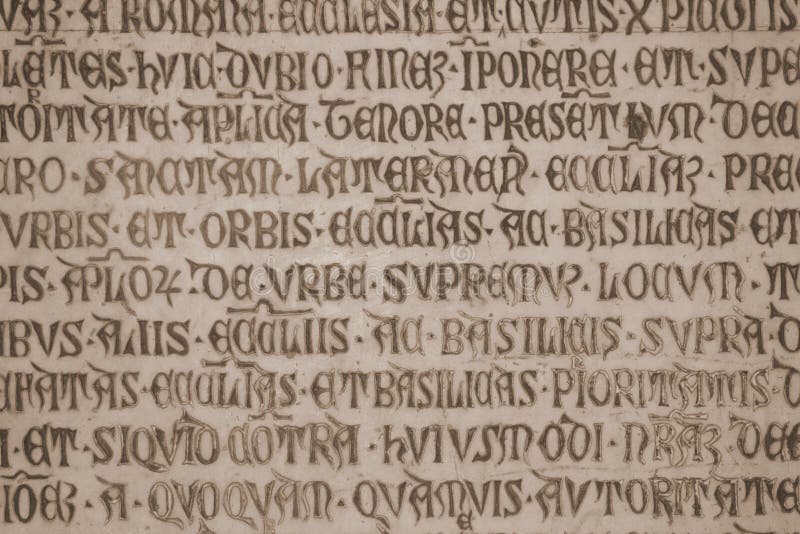 ROMANA ECCLESIA ET CVTIS X
LETES · HVIC · DVBIO · FINEZ · IPONERE · ET · SVPE
TORITATE · APLICA · TENORE · PRESETIVM · DEC
CRO · SANCTAM · LATERANEN · ECCLIAZ · PRE
VRBIS · ET · ORBIS · ECCLIAS · AC · BASILICAS ET
PIS · APLOꝜ · DE · VRBE · SVPREMVZ · LOCVM · T
IBVS · ALIIS · ECCLIIS · AC · BASILICIS · SVPRA · D
CHATAS · ECCLIAS · ET BASILICAS · PIORITATIS · D
I · ET · SIQVID COTRA · HVIVSMODI · NRAZ DEE
IOEZ · A · QVOQVAM · QVAMVIS · AVTORITATE